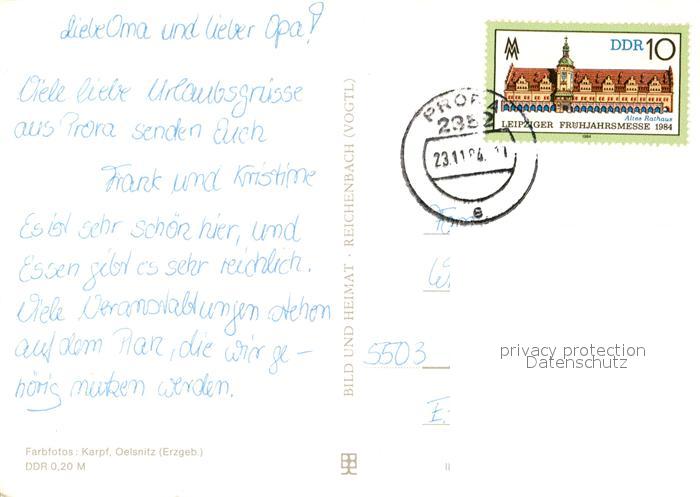 Liebe Oma und lieber Opa!
Viele liebe Urlaubsgrüsse
aus Prora senden Euch
Frank und Kristine
Es ist sehr schön hier, und
Essen gibt es sehr reichlich.
Viele Veranstaltungen stehen
auf dem Plan, die wir ge-
hörig nutzen werden.
Farbfotos: Karpf, Oelsnitz (Erzgeb.)
DDR 0,20 M
BILD UND HEIMAT · REICHENBACH (VOGTL)
DDR 10
Altes Rathaus
LEIPZIGER FRÜHJAHRSMESSE 1984
1984
PRORA
2352
23.11.84
e
5503
E.
privacy protection
Datenschutz